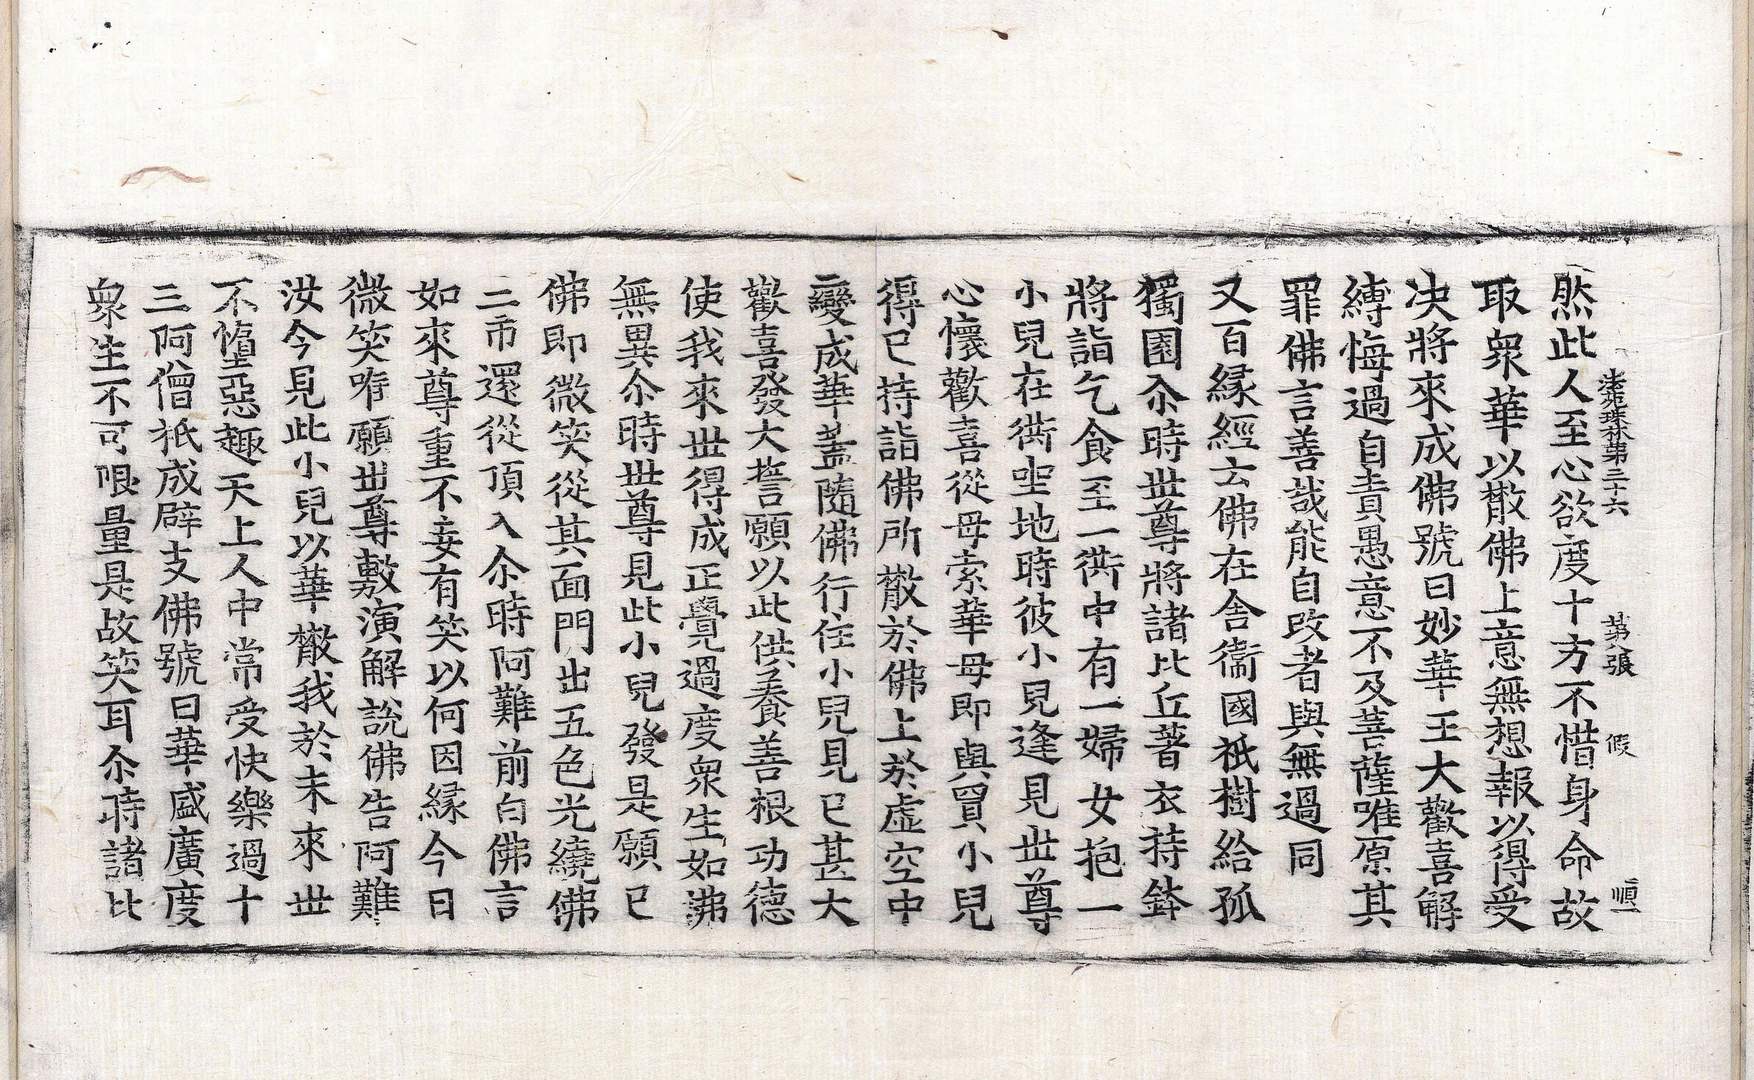 法苑珠林第三十六 第八張 假 順一
然此人至心欲度十方不惜身命故
取衆華以散佛上意無想報以得受
决將來成佛號曰妙華王大歡喜解
縛悔過自責愚意不及菩薩唯原其
罪佛言善哉能自改者與無過同
又百緣經云佛在舍衛國祇樹給孤
獨園尒時世尊將諸比丘著衣持鉢
將詣乞食至一衖中有一婦女抱一
小兒在衖坐地時彼小兒逢見世尊
心懷歡喜從母索華母即與買小兒
得已持詣佛所散於佛上於虛空中
變成華蓋隨佛行住小兒見已甚大
歡喜發大誓願以此供養善根功德
使我來世得成正覺過度衆生如沸
無異尒時世尊見此小兒發是願已
佛即微笑從其面門出五色光繞佛
三帀還從頂入尒時阿難前白佛言
如來尊重不妄有笑以何因緣今日
微笑唯願世尊敷演解說佛告阿難
汝今見此小兒以華散我於未來世
不墮惡趣天上人中常受快樂過十
三阿僧祇成辟支佛號曰華盛廣度
衆生不可限量是故笑耳尒時諸比